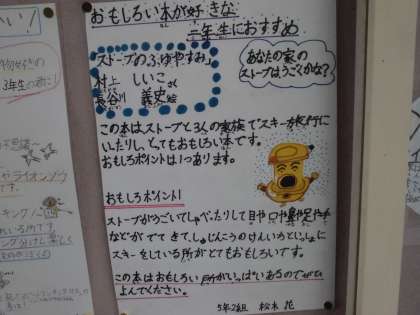 おもしろい本が好きな
二年生におすすめ
「ストーブのふゆやすみ」
村上 しいこ さく
長谷川 義史 絵
あなたの家の
ストーブはうごくかな?
この本はストーブと3人の家族でスキー旅行に
いたりし、とてもおもしろい本です。
おもしろポイントは1つあります。
おもしろポイント!
ストーブがうごいてしゃべったりして目や口や鼻や足や手
などがでてきて、しゅじんこうのけんいちといっしょに
スキーをしている所がとてもおもしろいです。
この本はおもしろい所がいっぱいあるのでぜひ
よんでください。
5年2組 松木 花
い!
3年生の君に